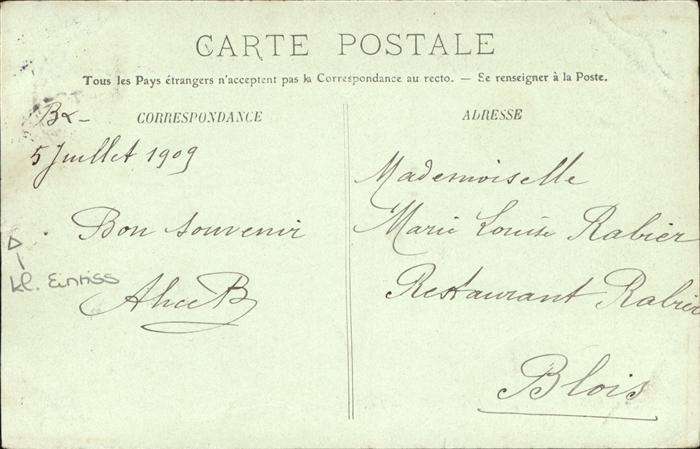 CARTE POSTALE
Tous les Pays étrangers n'acceptent pas la Correspondance au recto. — Se renseigner à la Poste.
CORRESPONDANCE
5 Juillet 1909
Bon souvenir
Alice B
kl. Einriss
ADRESSE
Mademoiselle
Marie Louise Rabier
Restaurant Rabier
Blois